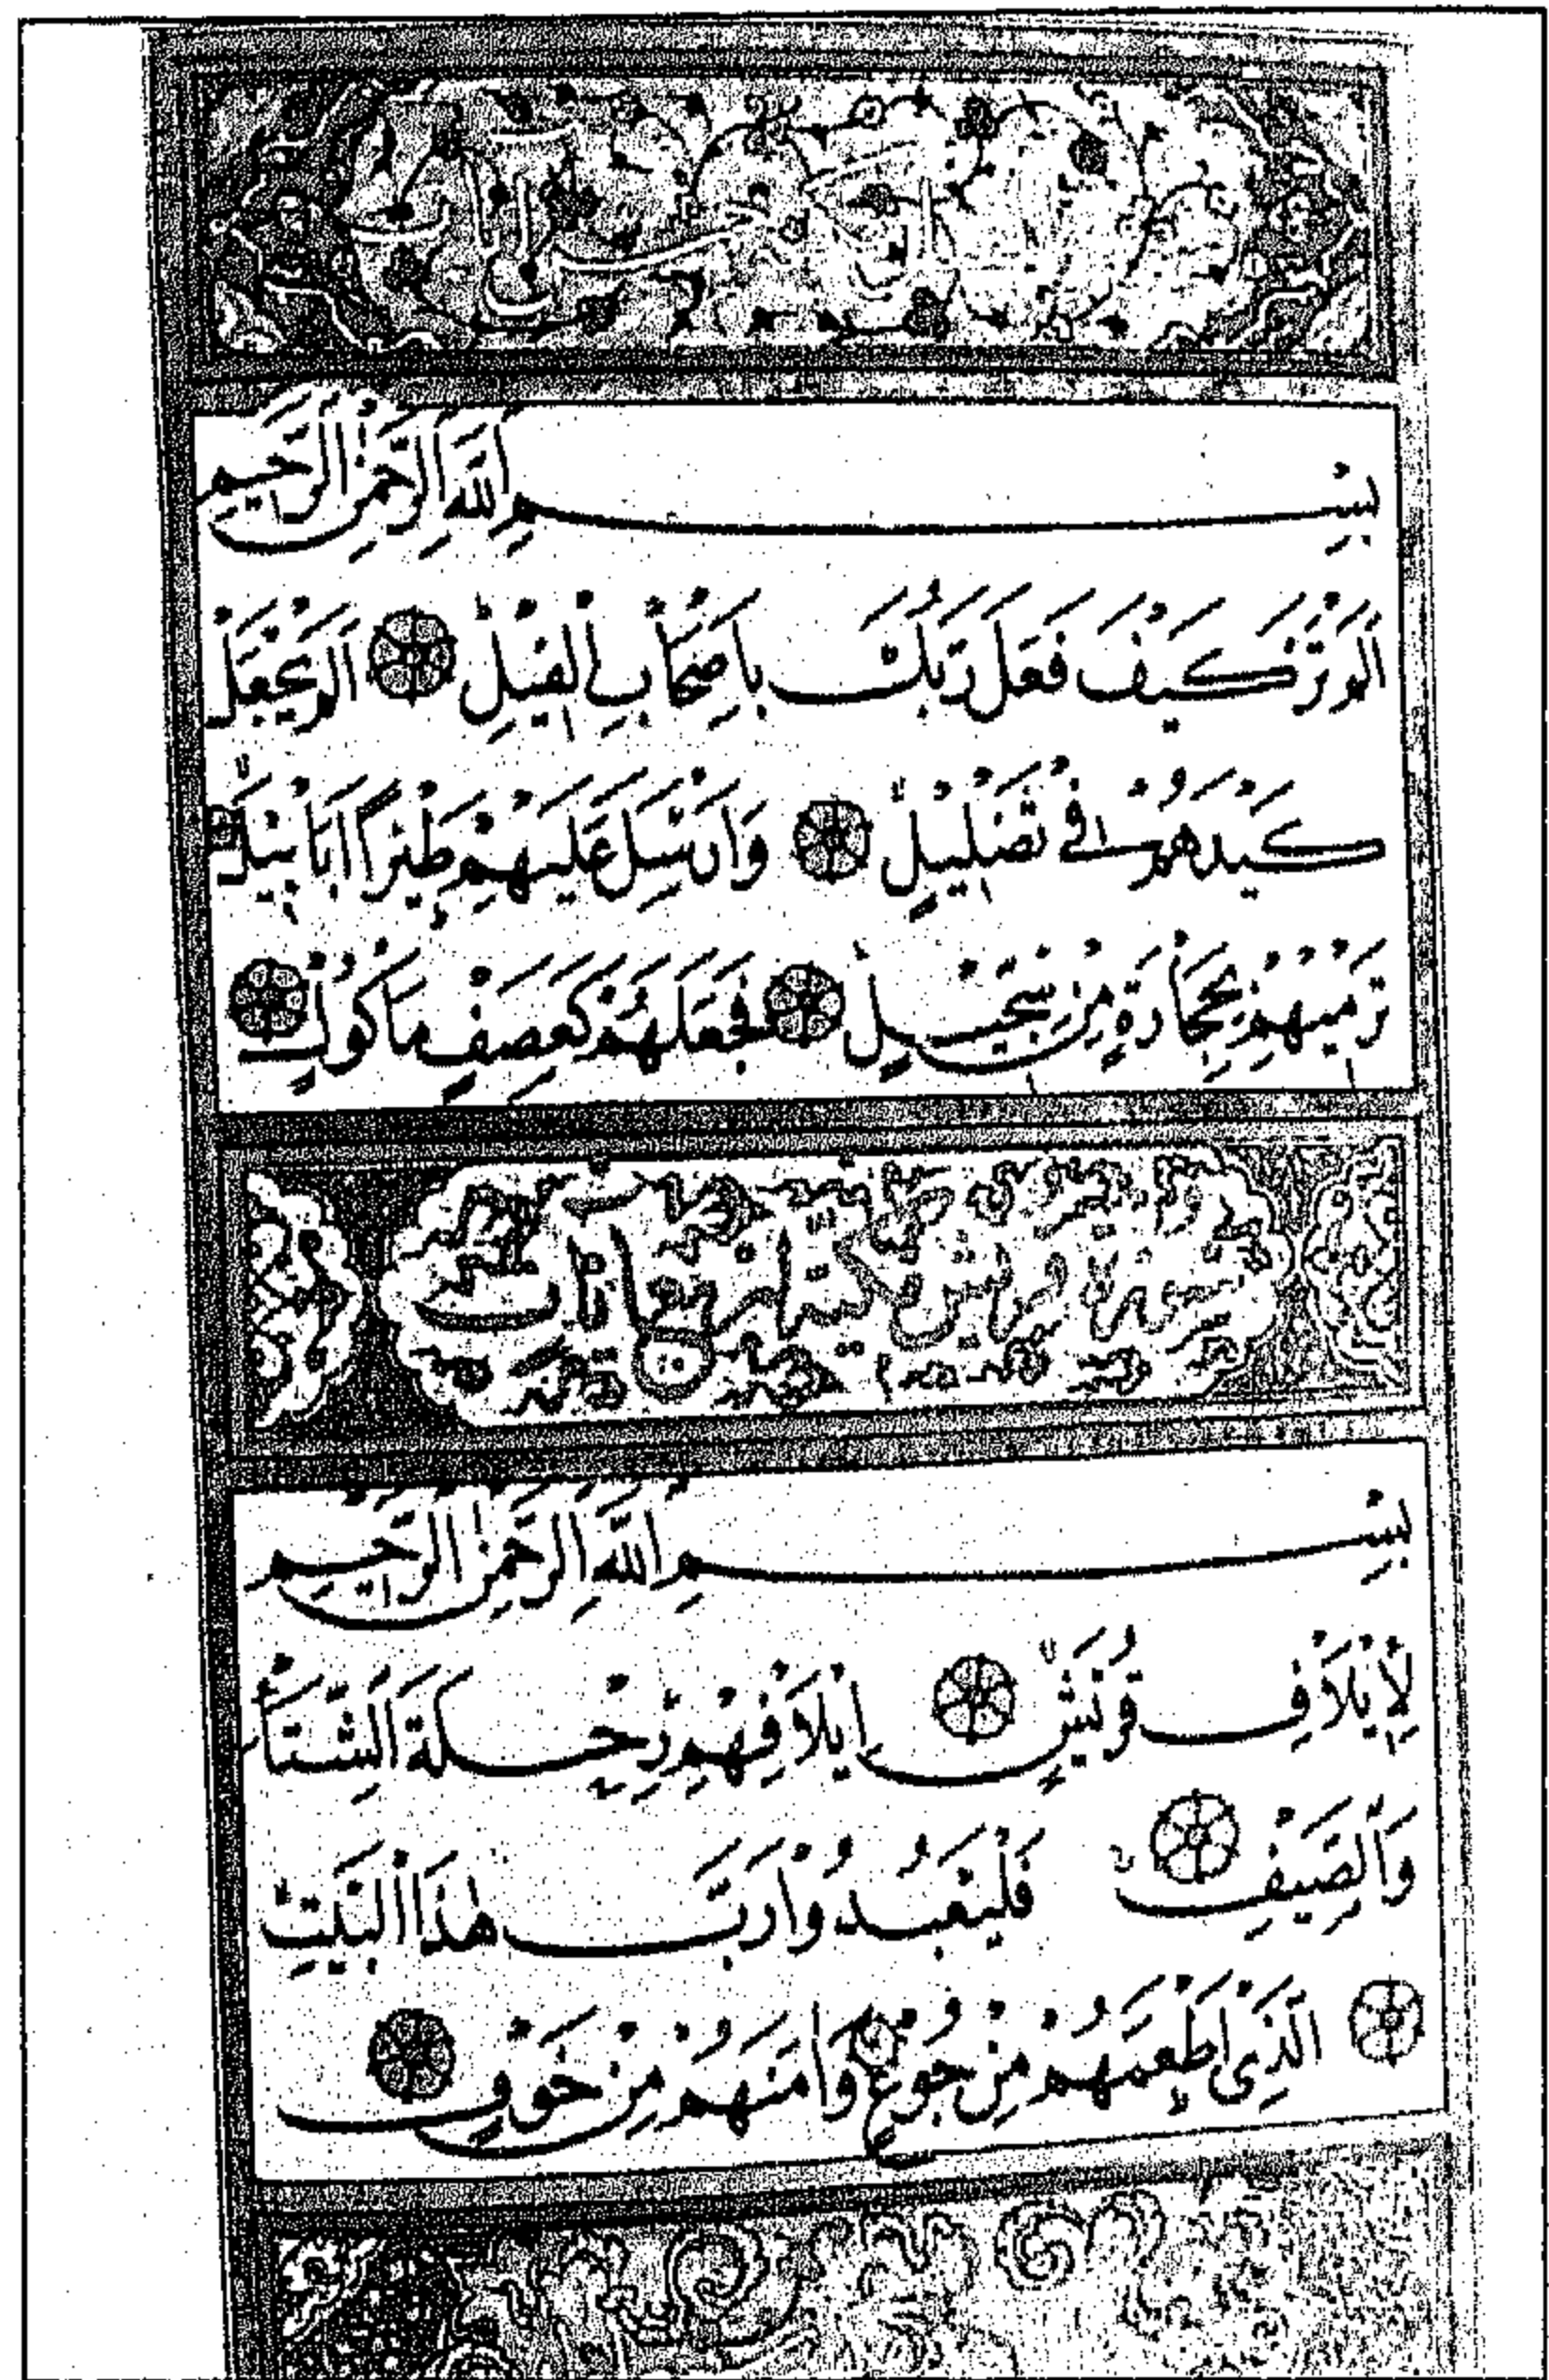 بِسْمِ اللَّهِ الرَّحْمَنِ الرَّحِيمِ
أَلَمْ تَرَ كَيْفَ فَعَلَ رَبُّكَ بِأَصْحَابِ الْفِيلِ أَلَمْ يَجْعَلْ
كَيْدَهُمْ فِي تَضْلِيلٍ وَأَرْسَلَ عَلَيْهِمْ طَيْرًا أَبَابِيلَ
تَرْمِيهِمْ بِحِجَارَةٍ مِنْ سِجِّيلٍ فَجَعَلَهُمْ كَعَصْفٍ مَأْكُولٍ
سورة قريش آيات
بِسْمِ اللَّهِ الرَّحْمَنِ الرَّحِيمِ
لِإِيلَافِ قُرَيْشٍ إِيلَافِهِمْ رِحْلَةَ الشِّتَاءِ
وَالصَّيْفِ فَلْيَعْبُدُوا رَبَّ هَذَا الْبَيْتِ
الَّذِي أَطْعَمَهُمْ مِنْ جُوعٍ وَآمَنَهُمْ مِنْ خَوْفٍ